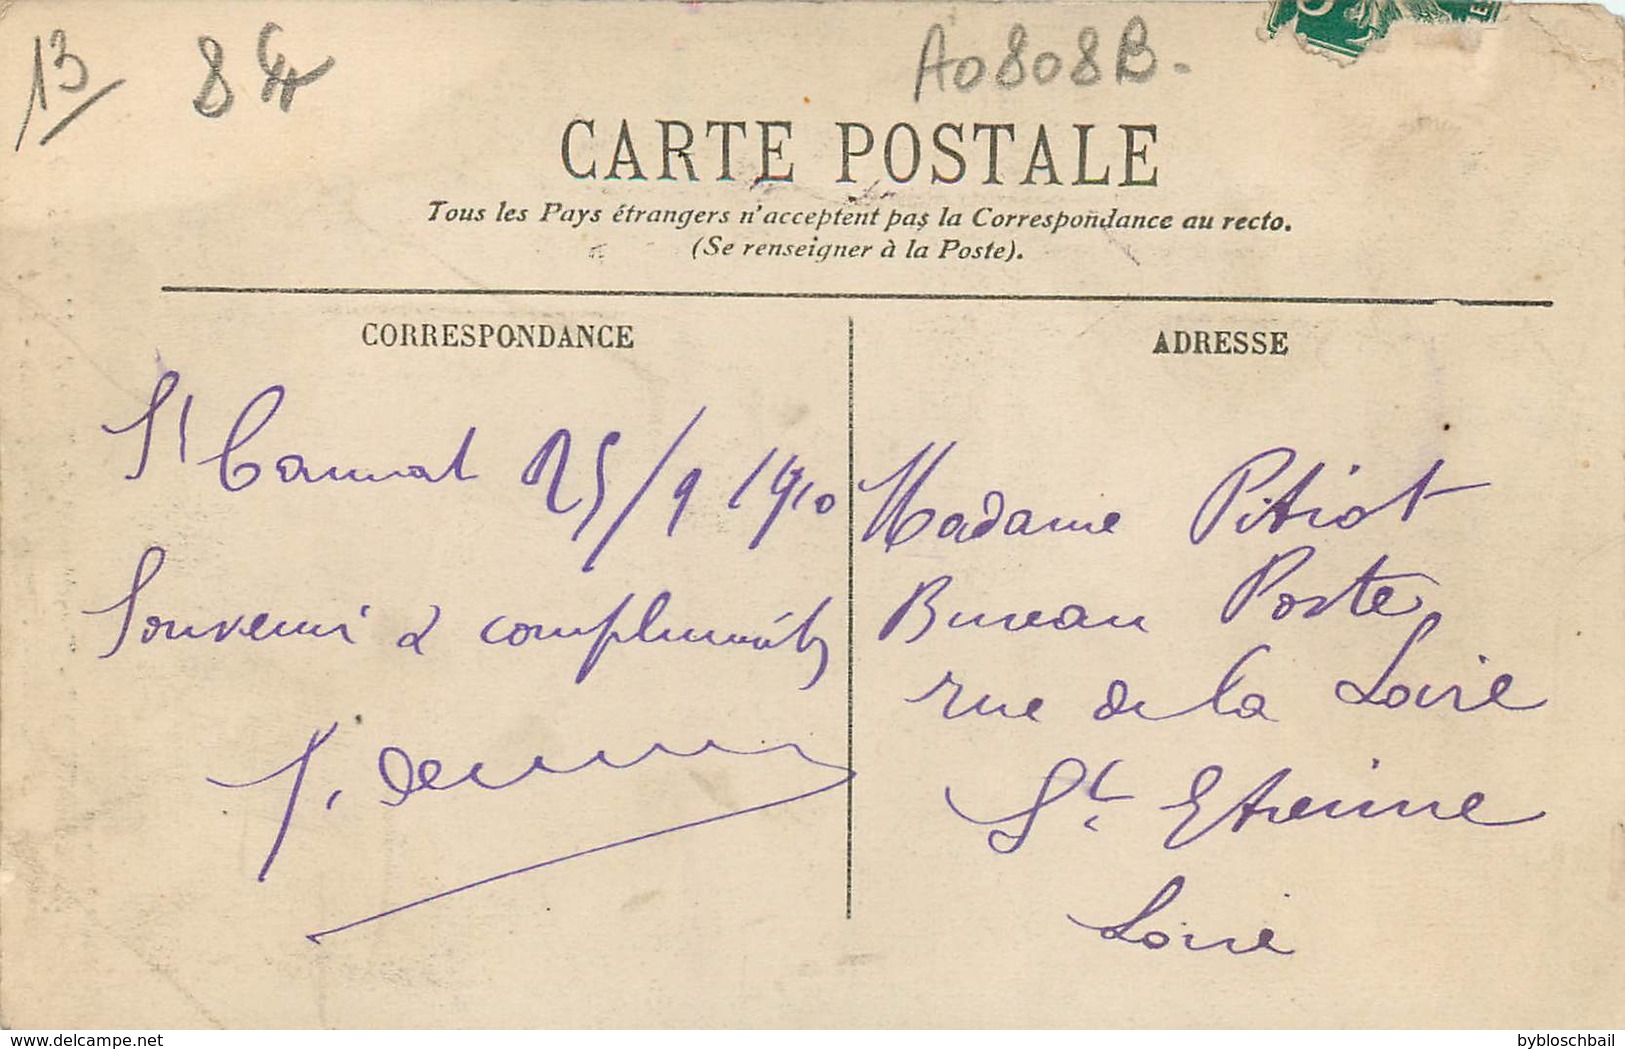 13
8
A0808B.
CARTE POSTALE
Tous les Pays étrangers n'acceptent pas la Correspondance au recto.
(Se renseigner à la Poste).
CORRESPONDANCE
St Cannat 25/9 1910
Souvenir & compliments
ADRESSE
Madame Pitiot
Bureau Poste
rue de la Loire
St. Etienne
Loire
delcampe.net
bybloschbail